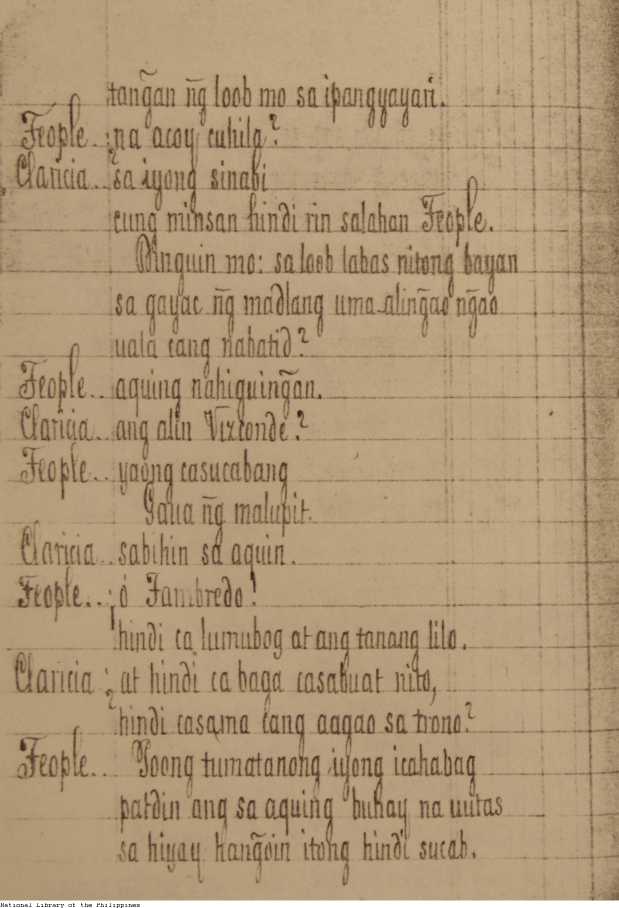 tang̃an n͠g loob mo sa ipangyayari.
Feople.. na acoy cuhila?
Claricia.. sa iyong sinabi
cung minsan hindi rin salahan Feople.
Dinguin mo: sa loob labas nitong bayan
sa gayac n͠g madlang uma-aling̃ao ng̃ao
uala cang nabatid?
Feople.. aquing nahiguing̃an.
Claricia.. ang alin Vizconde?
Feople.. yaong casucabang
Gaua n͠g malupit.
Claricia.. sabihin sa aquin.
Feople..: ó Fambredo!
hindi ca lumubog at ang tanang lilo.
Claricia: at hindi ca baga casabuat nito,
hindi casama cang aagao sa trono?
Feople.. Yoong tumatanong iyong icahabag
patdin ang sa aquing buhay na uutas
sa hiyay hang̃oin itong hindi sucab.
National Library of the Philippines